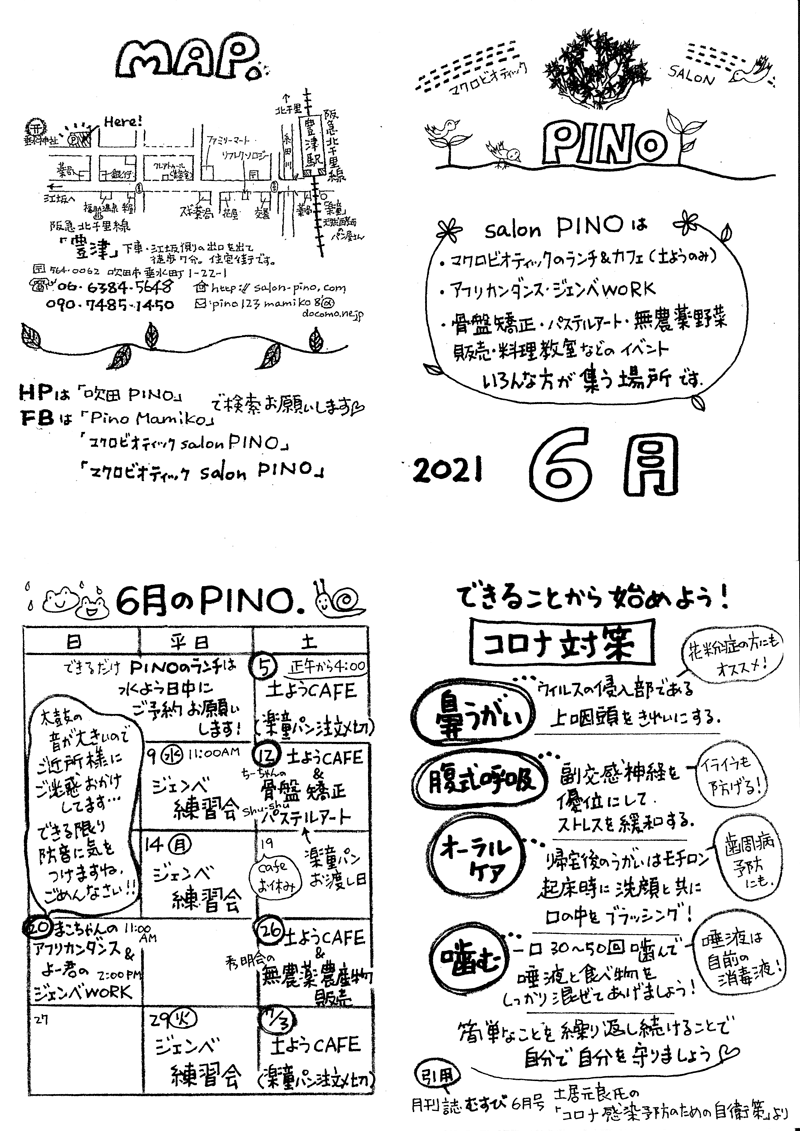 MAP.
Here!
北千里
ファミリーマート
リフレクソロジー
阪急北千里線
豊津駅
江坂へ
薬局
花屋
交番
阪急北千里線
「豊津」下車・江坂側の出口を出て
徒歩7分。住宅街です。
564-0062 吹田市垂水町1-22-1
06-6384-5648
http://salon-pino.com
090-7485-1450
pino123mamiko8@
docomo.ne.jp
HPは「吹田PINO」
FBは「Pino Mamiko」
で検索お願いします
「マクロビオティックsalon PINO」
「マクロビオティックsalon PINO」
マクロビオティック
SALON
PINO
salon PINOは
・マクロビオティックのランチ&カフェ(土ようのみ)
・アフリカンダンス・ジェンベWORK
・骨盤矯正・パステルアート・無農薬野菜
販売・料理教室などのイベント
いろんな方が集う場所です.
2021 6月
6月のPINO.
日 平日 土
できるだけPINOのランチは
水よう日中に
ご予約お願い
します!
5 正午から4:00
土ようCAFE
(楽童パン注文〆切)
太鼓の
音が大きいので
ご近所様に
ご迷惑おかけ
してます…
できる限り
防音に気を
つけますね。
ごめんなさい!!
9(水) 11:00AM
ジェンベ
練習会
12 土ようCAFE
&
ちーちゃんの
骨盤矯正
shu-shu
パステルアート
14(月)
ジェンベ
練習会
19
cafe
お休み
楽童パン
お渡し日
20 まこちゃんの 11:00
AM
アフリカンダンス&
よー君の 2:00PM
ジェンベWORK
26 土ようCAFE
&
秀明会の
無農薬農産物
販売
27
29(火)
ジェンベ
練習会
7/3
土ようCAFE
(楽童パン注文〆切)
できることから始めよう!
コロナ対策
花粉症の方にも
オススメ!
鼻うがい
ウィルスの侵入部である
上咽頭をきれいにする.
腹式呼吸
副交感神経を
優位にして.
ストレスを緩和する.
イライラも
防げる!
オーラル
ケア
帰宅後のうがいはモチロン
起床時に洗顔と共に
口の中をブラッシング!
歯周病
予防
にも.
噛む
一口30〜50回噛んで
唾液と食べ物を
しっかり混ぜてあげましょう!
唾液は
自前の
消毒液!
簡単なことを繰り返し続けることで
自分で自分を守りましょう
引用
月刊誌むすび6月号 土居元良氏の
「コロナ感染予防のための自衛策」より